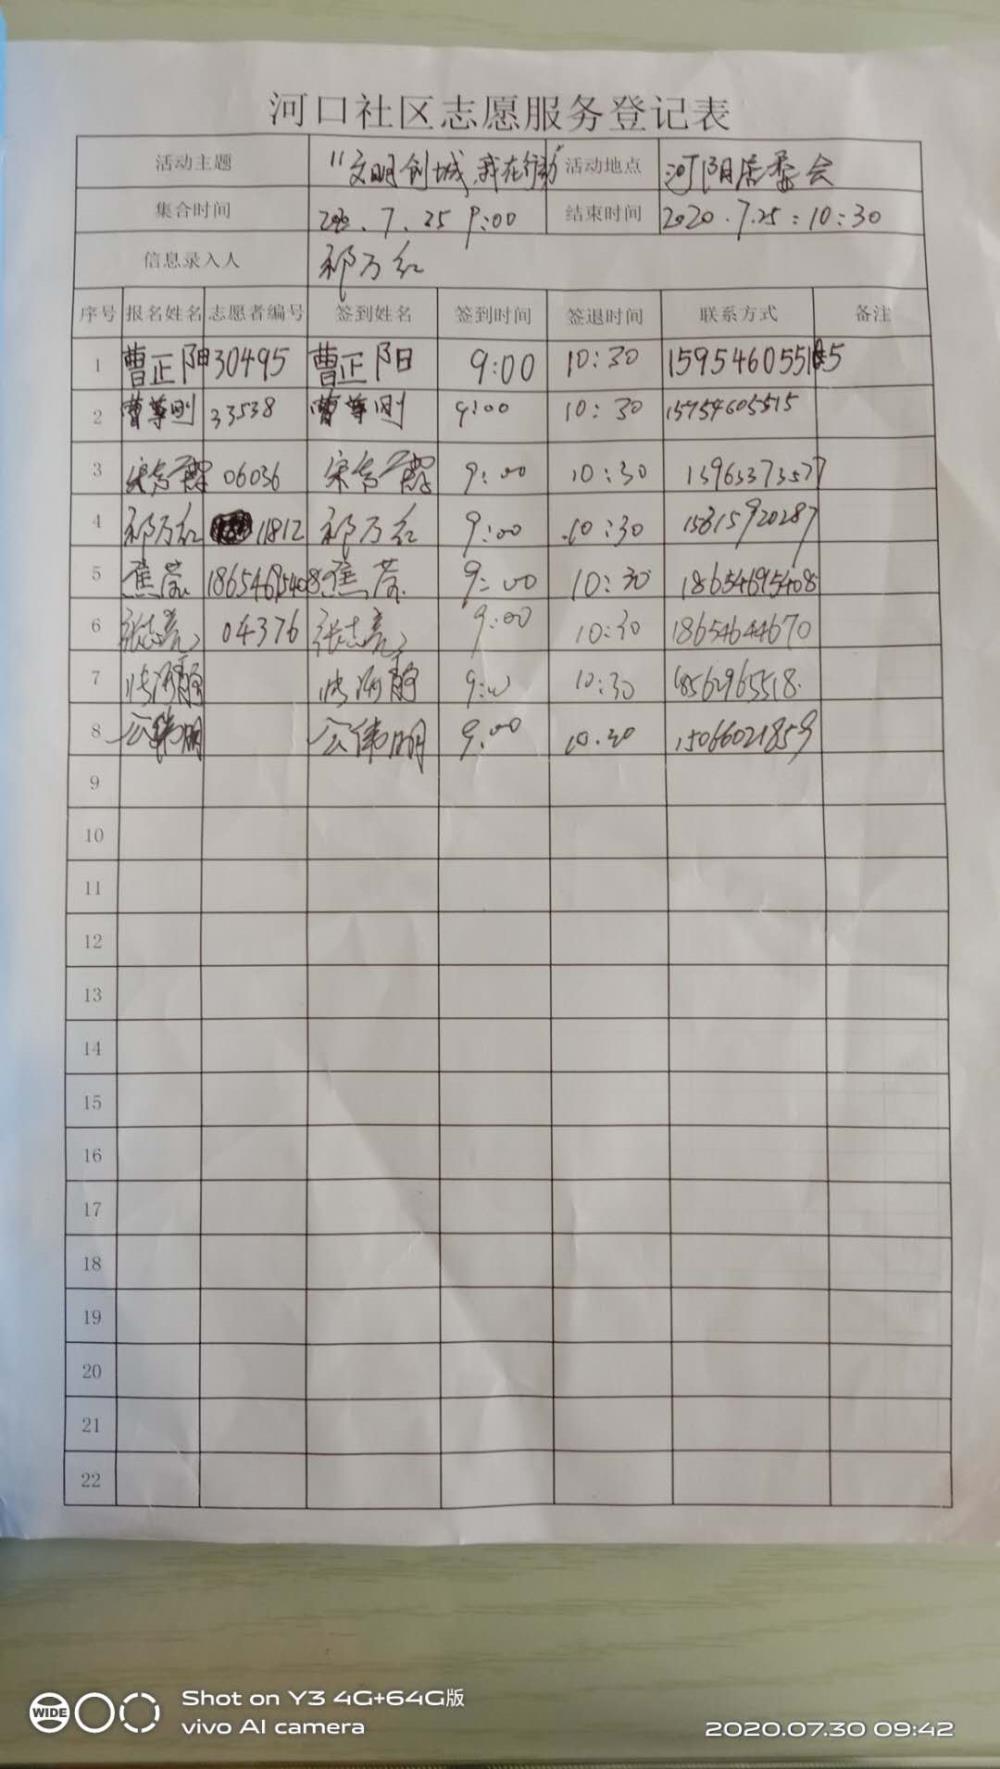 河口社区志愿服务登记表
活动主题 "文明创城,我在行动" 活动地点 河阳居委会
集合时间 2020.7.25 9:00 结束时间 2020.7.25:10:30
信息录入人 祁万红
序号 报名姓名 志愿者编号 签到姓名 签到时间 签退时间 联系方式 备注
1 曹正阳 30495 曹正阳 9:00 10:30
2 曹尊刚 33538 曹尊刚 9:00 10:30 15954605515
3 06036 9:00 10:30
4 祁万红 11812 祁万红 9:00 10:30 15615920287
5 18654695408 9:00 10:30 18654695408
6 张志亮 04376 张志亮 9:00 10:30 18654644670
7 9:00 10:30 18562965518.
8 公伟明 公伟明 9:00 10:30 15066021859
9
10
11
12
13
14
15
16
17
18
19
20
21
22
WIDE
Shot on Y3 4G+64G版
vivo AI camera
2020.07.30 09:42